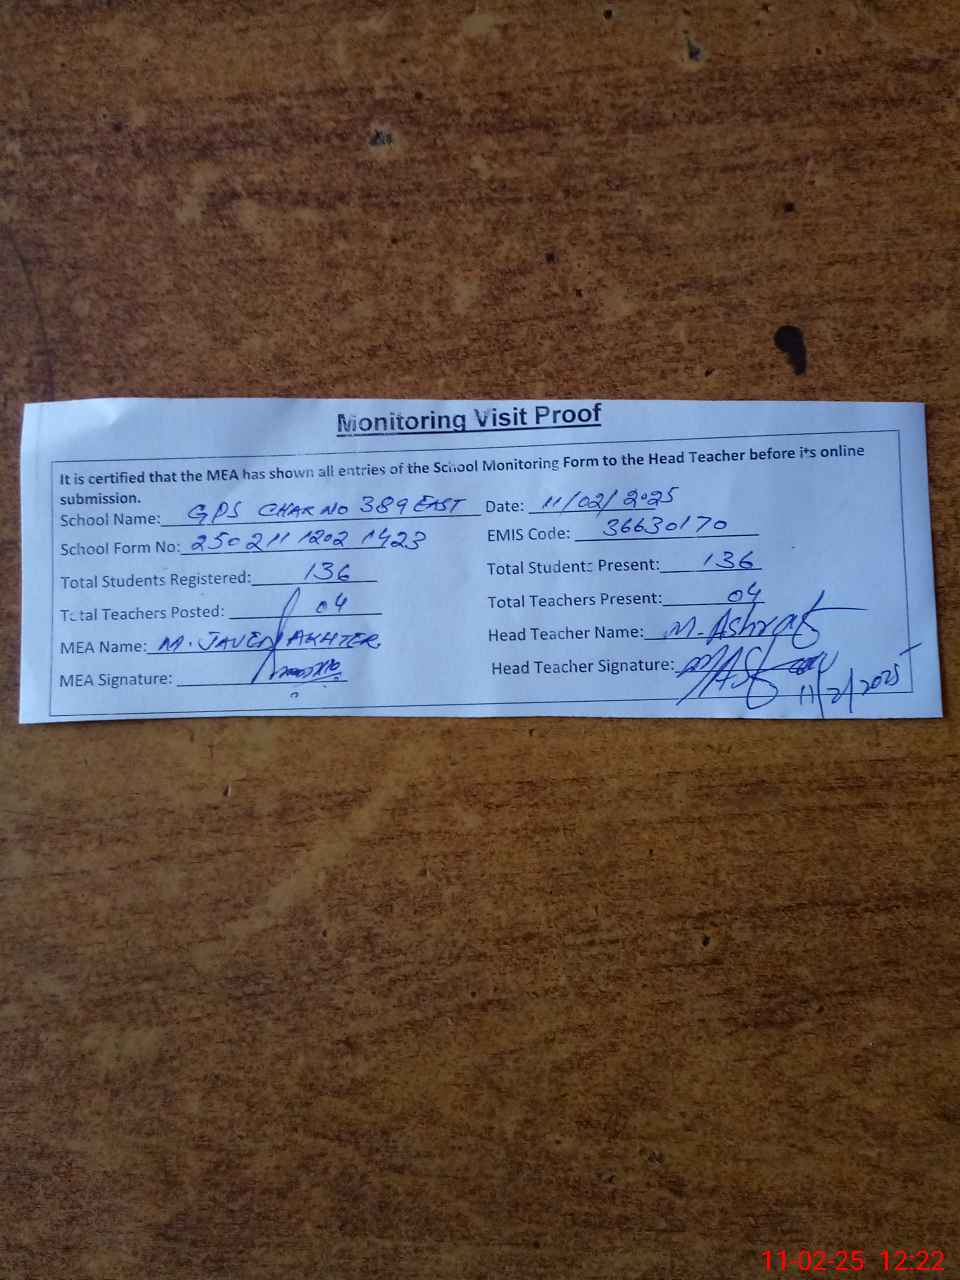 Monitoring Visit Proof
It is certified that the MEA has shown all entries of the School Monitoring Form to the Head Teacher before its online
submission.
School Name: GPS CHAK NO 389 EAST Date: 11/02/2025
School Form No: 250211 1202 1423 EMIS Code: 36630170
Total Students Registered: 136 Total Students Present: 136
Total Teachers Posted: 04 Total Teachers Present: 04
MEA Name: M. JAVED AKHTER Head Teacher Name: M. Ashraf
MEA Signature: Head Teacher Signature:
11/2/2025
11-02-25 12:22